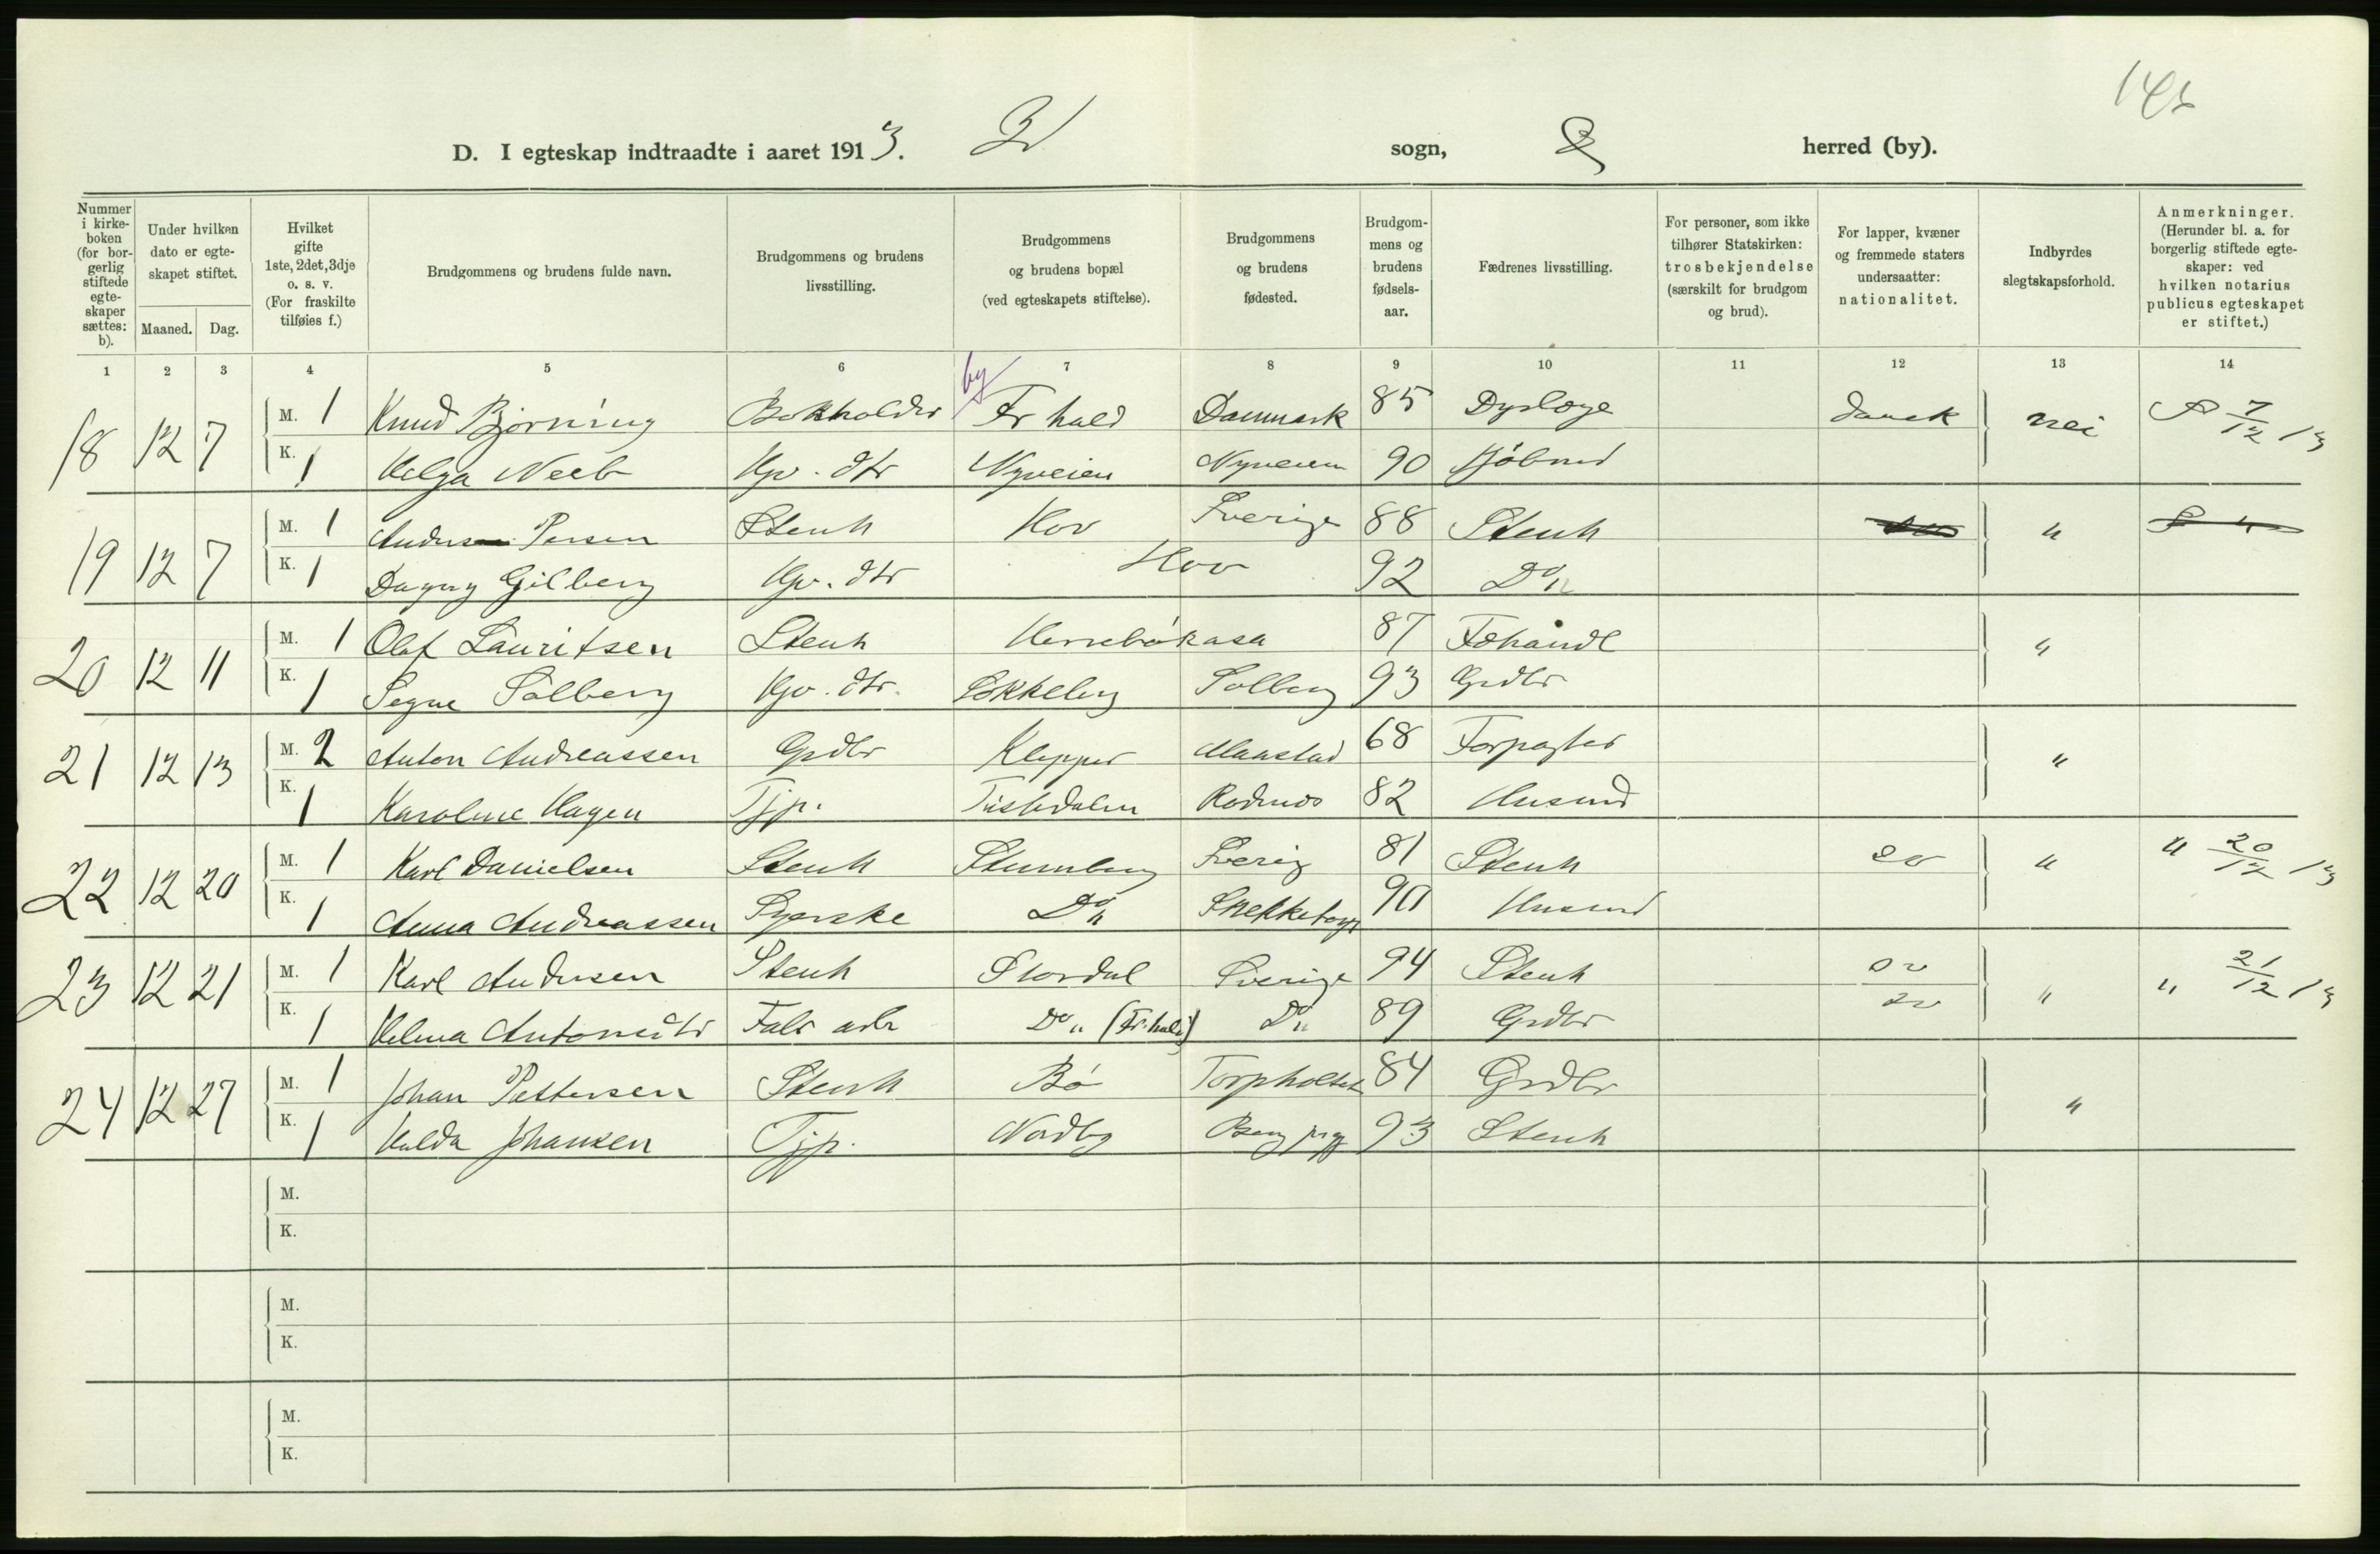 D. I egteskap indtraadte i aaret 1913. sogn, herred (by).
Nummer i kirkeboken (for borgerlig stiftede egteskaper sættes: b).
Under hvilken dato er egteskapet stiftet.
Maaned. Dag.
Hvilket gifte 1ste, 2det, 3dje o. s. v. (For fraskilte tilføies f.)
Brudgommens og brudens fulde navn.
Brudgommens og brudens livsstilling.
Brudgommens og brudens bopæl (ved egteskapets stiftelse).
Brudgommens og brudens fødested.
Brudgommens og brudens fødselsaar.
Fædrenes livsstilling.
For personer, som ikke tilhører Statskirken: trosbekjendelse (særskilt for brudgom og brud).
For lapper, kvæner og fremmede staters undersaatter: nationalitet.
Indbyrdes slegtskapsforhold.
Anmerkninger. (Herunder bl. a. for borgerlig stiftede egteskaper: ved hvilken notarius publicus egteskapet er stiftet.)
1 2 3 4 5 6 7 8 9 10 11 12 13 14
by
18 12 7 M. 1 Knud Bjørning Bokholder Fr hald Danmark 85 Dyrlæge dansk nei 7/12 13
K. 1 Helga Neeb Gv. dtr Nyveien Nyveien 90 Kjøbmd
19 12 7 M. 1 Anders Persen Stenh Hov Sverige 88 Stenh "
K. 1 Dagny Gilberg Gv. dtr Hov 92 Do "
20 12 11 M. 1 Olaf Lauritsen Stenh Herrebøkasa 87 Fehandl "
K. 1 Segne Solberg Gv. dtr. Løkkeberg Solberg 93 Grdbr
21 12 13 M. 2 Anton Andreassen Grdbr Klepper 68 Forpagter "
K. 1 Karoline Hagen Tjp. Tistedalen Rødenes 82 Husmd
22 12 20 M. 1 Karl Danielsen Stenh Stumberg Sverig 81 Stenh do " " 20/12 13
K. 1 Anna Andreassen Syerske Do " 90 Husmd
23 12 21 M. 1 Karl Andersen Stenh Stordal Sverige 94 Stenh do " " 21/12 13
K. 1 Helma Antonsdtr Fabr arb Do " (Fr.hald) Do " 89 Grdbr do
24 12 27 M. 1 Johan Pettersen Stenh Bø Torpholtet 84 Grdbr "
K. 1 Hulda Johansen Tjp. Nordby Berg prgj 93 Stenh
M.
K.
M.
K.
M.
K.